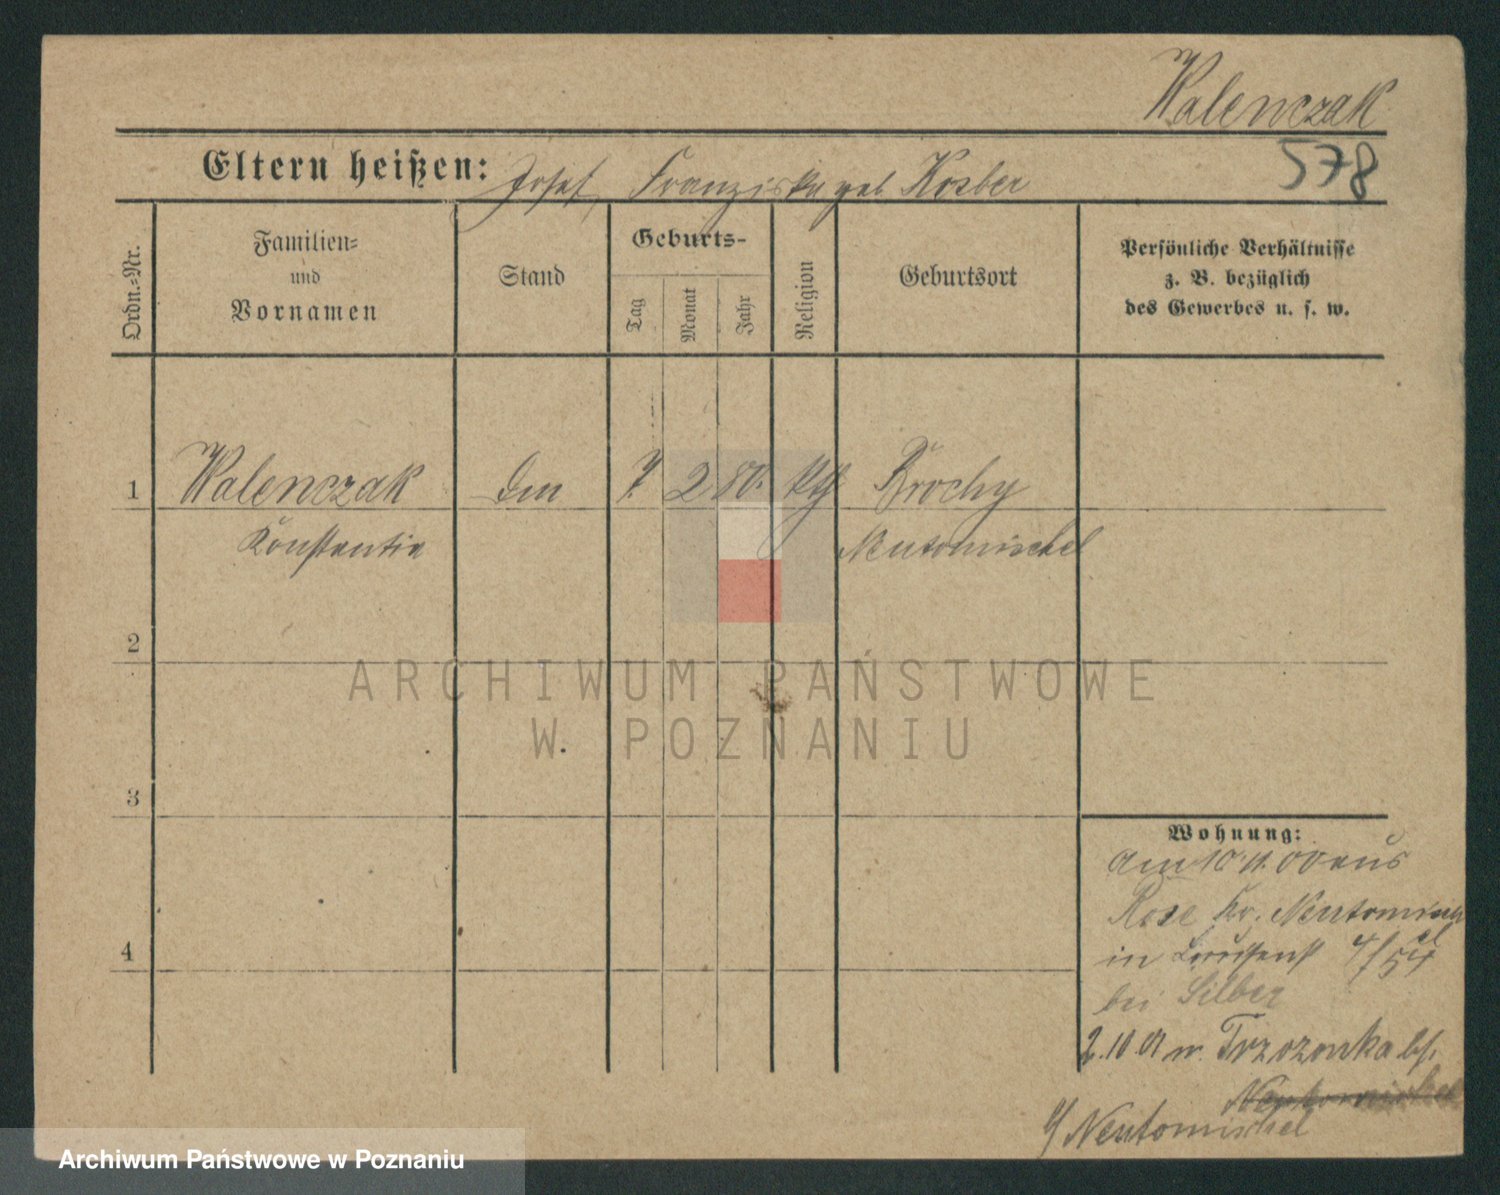 Walenczak
578
Eltern heißen: Josef, Franziska geb. Kosber
Ordn.-Nr.
Familien-
und
Vornamen
Stand
Geburts-
Tag
Monat
Jahr
Religion
Geburtsort
Persönliche Verhältnisse
z. B. bezüglich
des Gewerbes u. s. w.
1 Walenczak 2 80. Brochy
Konstantia Neutomischel
2
ARCHIWUM PAŃSTWOWE
W POZNANIU
3
Wohnung:
am 10.11.00 aus
Rose Kr. Neutomisch
el
4
in 4/54
bei Silber
2.10.01 n. Trzozonka bf.
Neutomischel
Neutomischel
Archiwum Państwowe w Poznaniu